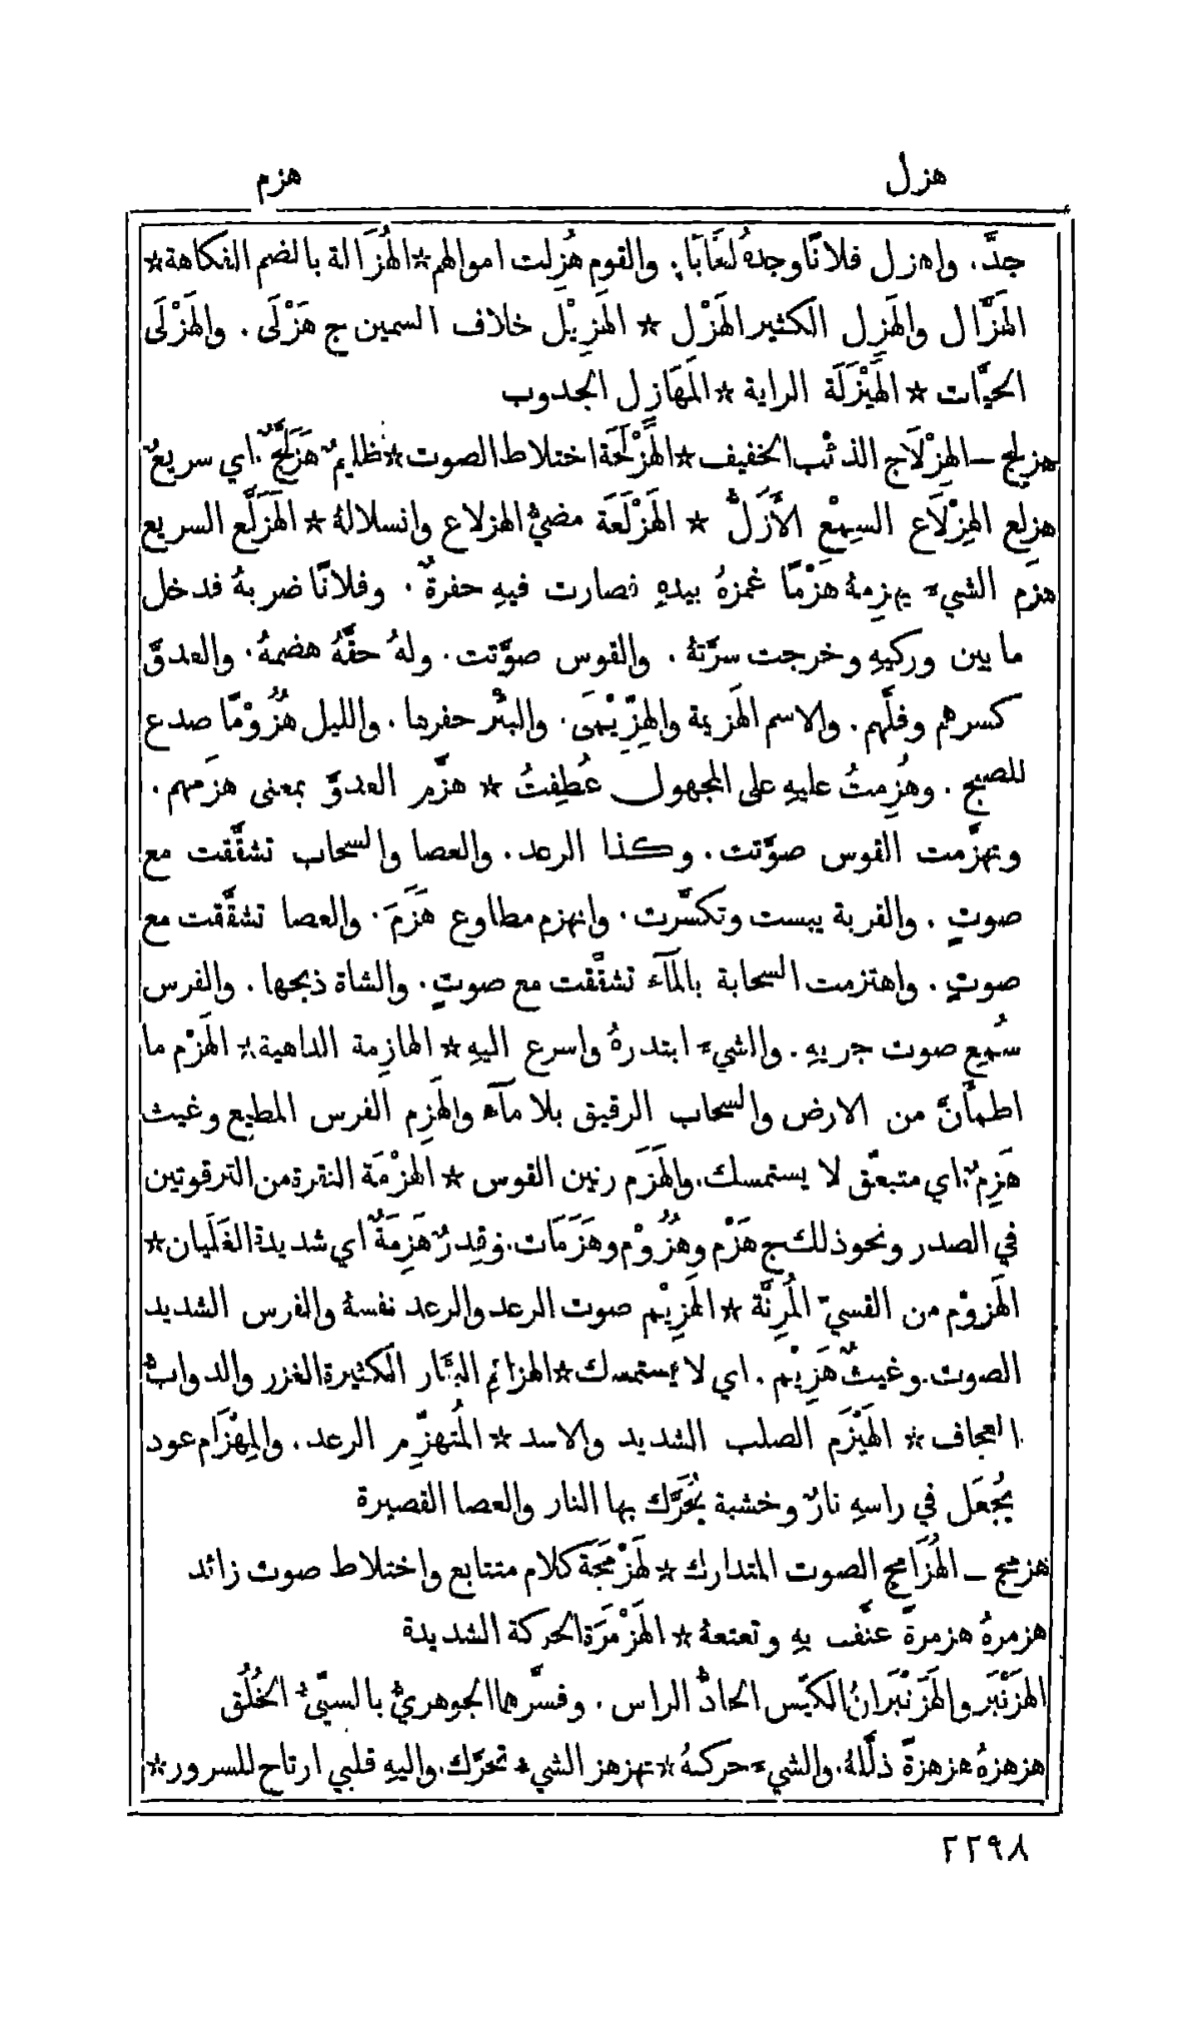 هزل
هزم
جدَّ. واهزل فلانًا وجدهُ لعَّابًا. والقوم هُزِلت اموالهم * الهُزَالة بالضم الفكاهة *
الهَزَّال والهَزِل الكثير الهَزْل * الهَزِيْل خلاف السمين ج هَزْلَى. والهَزْلَى
الحيَّات * الهَيْزَلَة الراية * المَهَازِل الجدوب
هزلج – الهِزْلَاج الذئب الخفيف * الهَزْلَجَة اختلاط الصوت * ظليمٌ هَزَلَّجٌ. اي سريعٌ
هزلع الهِزْلَاع السِمْع الأَزَلُّ * الهَزْلَعَة مضيُّ الهزلاع وانسلالهُ * الهَزَلَّع السريع
هزم الشيء يهزِمهُ هَزْمًا غمزهُ بيدهِ فصارت فيهِ حفرةٌ. وفلانًا ضربهُ فدخل
ما بين وركيهِ وخرجت سرَّتهُ. والقوس صوَّتت. ولهُ حقَّهُ هضمهُ. والعدوَّ
كسرهم وفلَّهم. والاسم الهَزِيمة والهِزِّيْمَى. والبئر حفرها. والليل هُزُوْمًا صدع
للصبح. وهُزِمتُ عليهِ على المجهول عُطِفتُ * هزَّم العدوَّ بمعنى هزَمهم.
وتهزَّمت القوس صوَّتت. وكذا الرعد. والعصا والسحاب تشقَّقت مع
صوتٍ. والقربة يبست وتكسَّرت. وانهزم مطاوع هَزَمَ. والعصا تشقَّقت مع
صوتٍ. واهتزمت السحابة بالمآء تشقَّقت مع صوتٍ. والشاة ذبحها. والفرس
سُمِع صوت جريهِ. والشيء ابتدرهُ واسرع اليهِ * الهازِمة الداهية * الهَزْم ما
اطمأنَّ من الارض والسحاب الرقيق بلا مآء والهَزِم الفرس المطيع وغيث
هَزِمٌ. اي متبعِّق لا يستمسك. والهَزَم رنين القوس * الهَزْمَة النقرة من الترقوتين
في الصدر ونحو ذلك ج هَزْم وهُزُوْم وهَزَمَات. وقِدرٌ هَزِمَةٌ اي شديدة الغَلَيان *
الهَزوْم من القسيّ المُرِنَّة * الهَزِيْم صوت الرعد والرعد نفسهُ والفرس الشديد
الصوت. وغيثٌ هَزِيْم. اي لا يستمسك * الهزائم البِئار الكثيرة الغزر والدوابُّ
العجاف * الهَيْزَم الصلب الشديد والاسد * المُتهزِّم الرعد. والمِهْزَام عود
يُجْعَل في راسهِ نارٌ وخشبة يُحَرَّك بها النار والعصا القصيرة
هزمج – الهُزَامِج الصوت المتدارك * لهَزْمَجَة كلام متتابع واختلاط صوت زائد
هزمرهُ هزمرةً عنَّف بهِ وتعتعهُ * الهَزْمَرَة الحركة الشديدة
الهَزَنْبَر والهَزَنْبَران الكَيِّس الحادُّ الراس. وفسَّرهما الجوهريُّ بالسيّئ الخُلُق
هزهزهُ هزهزةً ذلَّلهُ. والشيء حركهُ * تهزهز الشيء تحرَّك. واليهِ قلبي ارتاح للسرور *
٢٢٩٨